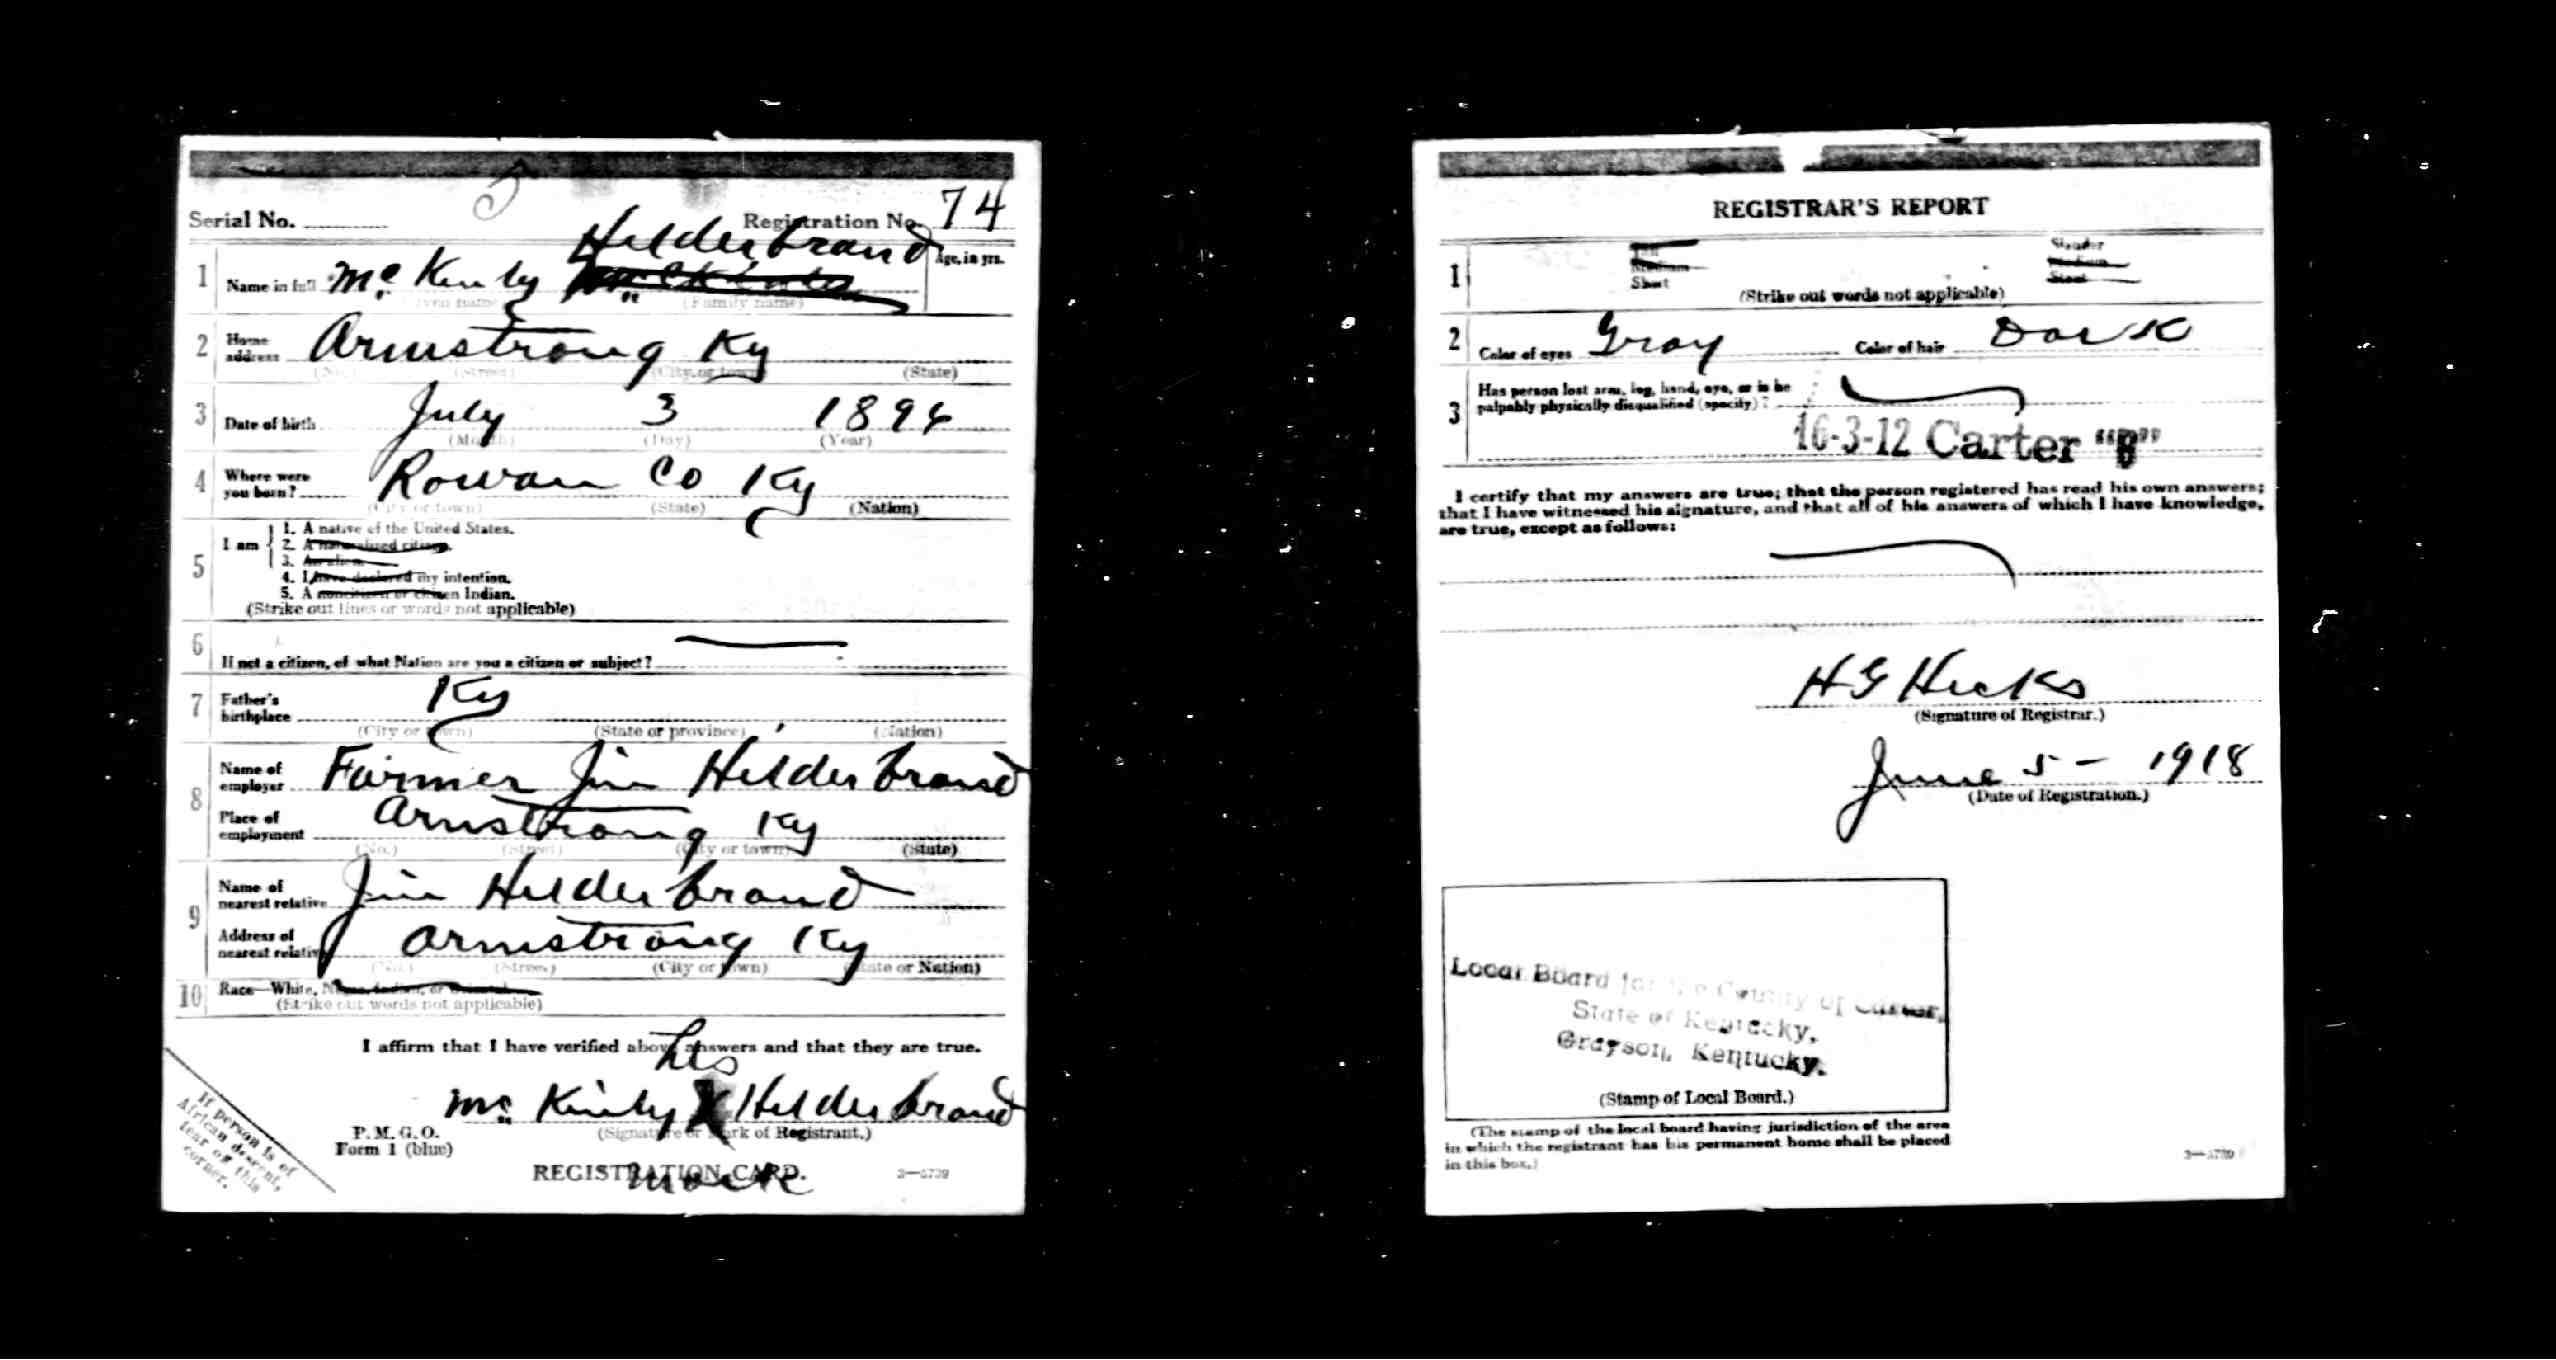 Serial No. Registration No. 74
Helderbrand
1 Name in full Mc. Kinly Age, in yrs.
(Given name) (Family name)
2 Home address Armstrong Ky
(No.) (Street) (City or town) (State)
3 Date of birth July 3 1896
(Month) (Day) (Year)
4 Where were you born? Rowan Co Ky
(City or town) (State) (Nation)
5 I am
1. A native of the United States.
2. A naturalized citizen.
3. An alien.
4. I have declared my intention.
5. A noncitizen or citizen Indian.
(Strike out lines or words not applicable)
6 If not a citizen, of what Nation are you a citizen or subject?
7 Father's birthplace Ky
(City or town) (State or province) (Nation)
8 Name of employer Farmer Jim Helderbrand
Place of employment Armstrong Ky
(No.) (Street) (City or town) (State)
9 Name of nearest relative Jim Helderbrand
Address of nearest relative Armstrong Ky
(No.) (Street) (City or town) (State or Nation)
10 Race—White, Negro, Indian, or Oriental
(Strike out words not applicable)
I affirm that I have verified above answers and that they are true.
his
Mc. Kinly X Helderbrand
(Signature or mark of Registrant.)
P. M. G. O.
Form 1 (blue)
REGISTRATION CARD. 3—5739
mark
If person is of
African descent,
tear off this
corner.
REGISTRAR'S REPORT
1 Tall Slender
Medium Medium
Short Stout
(Strike out words not applicable)
2 Color of eyes Gray Color of hair Dark
3 Has person lost arm, leg, hand, eye, or is he
palpably physically disqualified (specify)?
16-3-12 Carter "B"
I certify that my answers are true; that the person registered has read his own answers;
that I have witnessed his signature, and that all of his answers of which I have knowledge,
are true, except as follows:
H G Hicks
(Signature of Registrar.)
June 5 - 1918
(Date of Registration.)
Local Board for the County of Carter,
State of Kentucky,
Grayson, Kentucky.
(Stamp of Local Board.)
(The stamp of the local board having jurisdiction of the area
in which the registrant has his permanent home shall be placed
in this box.)
3—5739